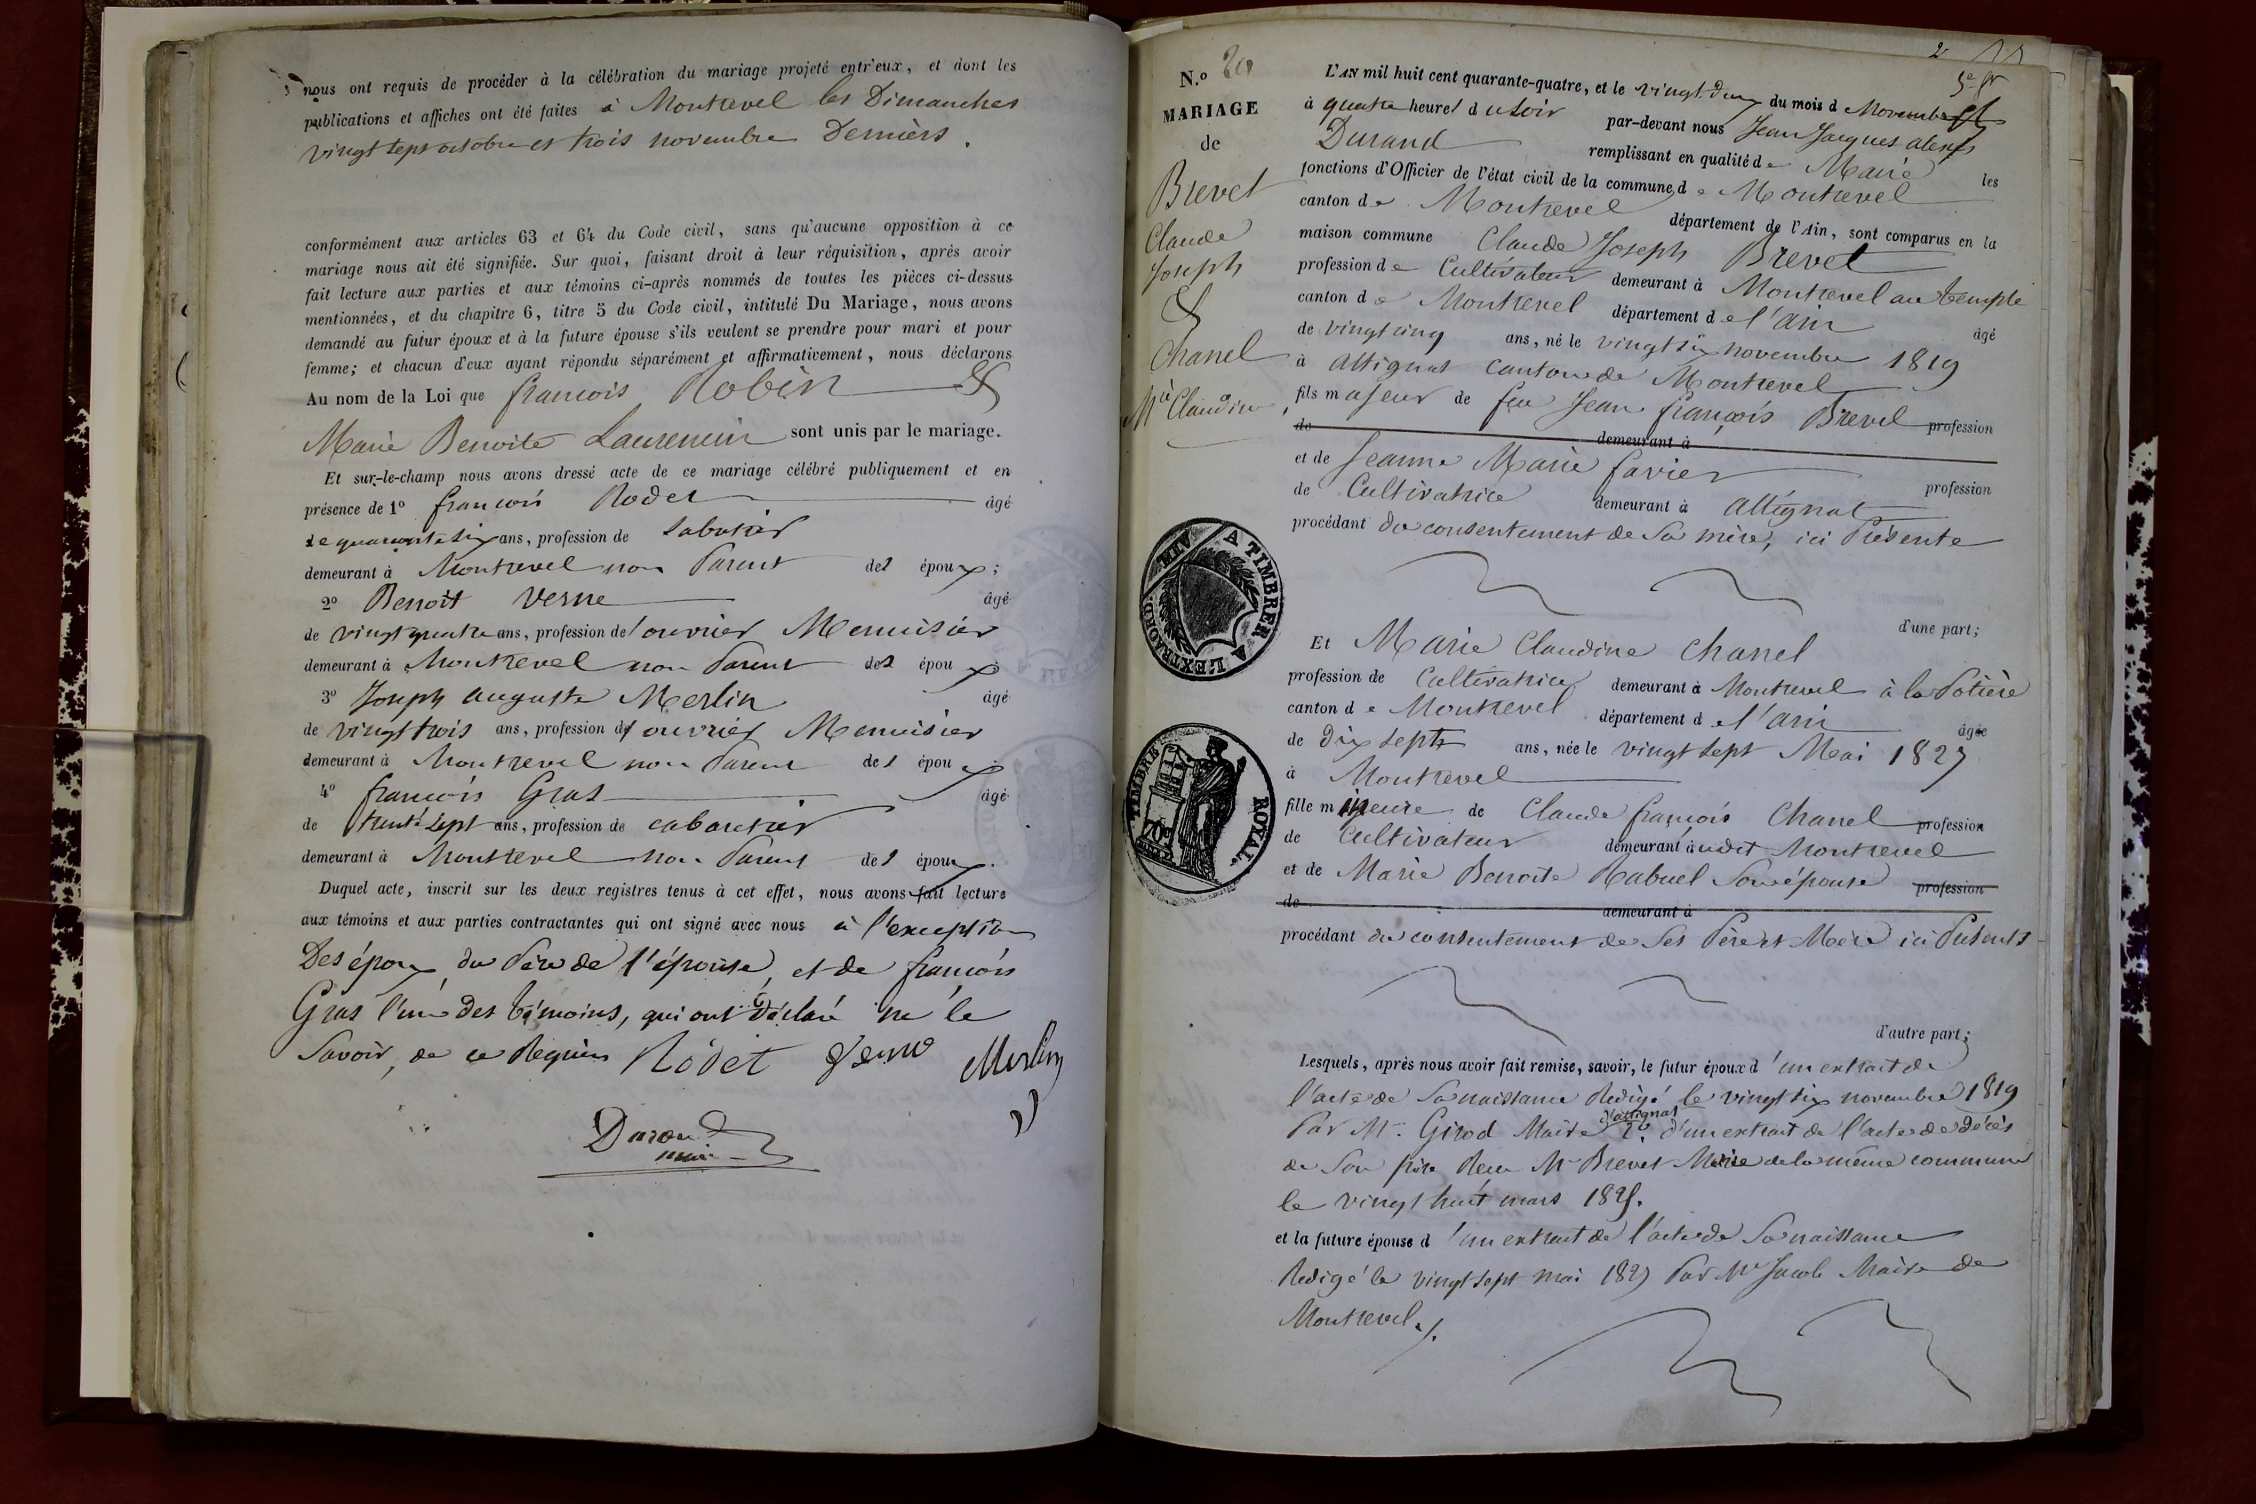 nous ont requis de procéder à la célébration du mariage projeté entr'eux, et dont les
publications et affiches ont été faites à Montrevel les Dimanches
vingt sept octobre et trois novembre Derniers.
conformément aux articles 63 et 64 du Code civil, sans qu'aucune opposition à ce
mariage nous ait été signifiée. Sur quoi, faisant droit à leur réquisition, après avoir
fait lecture aux parties et aux témoins ci-après nommés de toutes les pièces ci-dessus
mentionnées, et du chapitre 6, titre 5 du Code civil, intitulé Du Mariage, nous avons
demandé au futur époux et à la future épouse s'ils veulent se prendre pour mari et pour
femme; et chacun d'eux ayant répondu séparément et affirmativement, nous déclarons
Au nom de la Loi que françois Robin &
Marie Benoite Laurencin sont unis par le mariage.
Et sur-le-champ nous avons dressé acte de ce mariage célébré publiquement et en
présence de 1° françois Rodet âgé
de quarante six ans, profession de sabotier
demeurant à Montrevel non Parent des époux;
2° Benoît Verne âgé
de vingt quatre ans, profession d'ouvrier Menuisier
demeurant à Montrevel non Parent des époux
3° Joseph auguste Merlin âgé
de vingt trois ans, profession d'ouvrier Menuisier
demeurant à Montrevel non Parent des époux
4° françois Gras âgé
de trente sept ans, profession de cabaretier
demeurant à Montrevel non Parent des époux.
Duquel acte, inscrit sur les deux registres tenus à cet effet, nous avons fait lecture
aux témoins et aux parties contractantes qui ont signé avec nous à l'exception
Des époux du Père de l'épouse, et de françois
Gras l'un des témoins, qui ont Déclaré ne le
Savoir, de ce Requis Rodet Verne Merlin
Durand
maire
N.° 20
MARIAGE
de
Brevet
Claude
Joseph
&
Chanel
Mie Claudine
L'AN mil huit cent quarante-quatre, et le vingt-deux du mois d Novembre
à quatre heures du soir par-devant nous Jean Jacques alexis
Durand remplissant en qualité de Maire les
fonctions d'Officier de l'état civil de la commune de Montrevel
canton de Montrevel département de l'Ain, sont comparus en la
maison commune Claude Joseph Brevet
profession de Cultivateur demeurant à Montrevel au temple
canton de Montrevel département de l'ain âgé
de vingt cinq ans, né le vingt six novembre 1819
à attignat canton de Montrevel
fils majeur de feu Jean françois Brevet profession
de demeurant à
et de Jeanne Marie favier profession
de Cultivatrice demeurant à attignat
procédant du consentement de sa mère, ici Présente
d'une part;
Et Marie Claudine Chanel
profession de Cultivatrice demeurant à Montrevel à la Potière
canton de Montrevel département de l'ain âgée
de Dix sept ans, née le vingt sept Mai 1827
à Montrevel
fille mineure de Claude françois Chanel profession
de Cultivateur demeurant audit Montrevel
et de Marie Benoite Rabuel son épouse profession
de demeurant à
procédant du consentement de ses Père et Mère ici Présents
d'autre part;
Lesquels, après nous avoir fait remise, savoir, le futur époux d'un extrait de
l'acte de sa naissance Rédigé le vingt six novembre 1819
Par Mr. Girod Maire d'attignat 2° d'un extrait de l'acte de décès
de son père Reçu Mr Brevet Maire de la même commune
le vingt huit mars 182
et la future épouse d'un extrait de l'acte de sa naissance
Rédigé le vingt sept mai 1827 Par Mr Jacob Maire de
Montrevel ./.
A TIMBRER A L'EXTRAORD. AIN
TIMBRE ROYAL